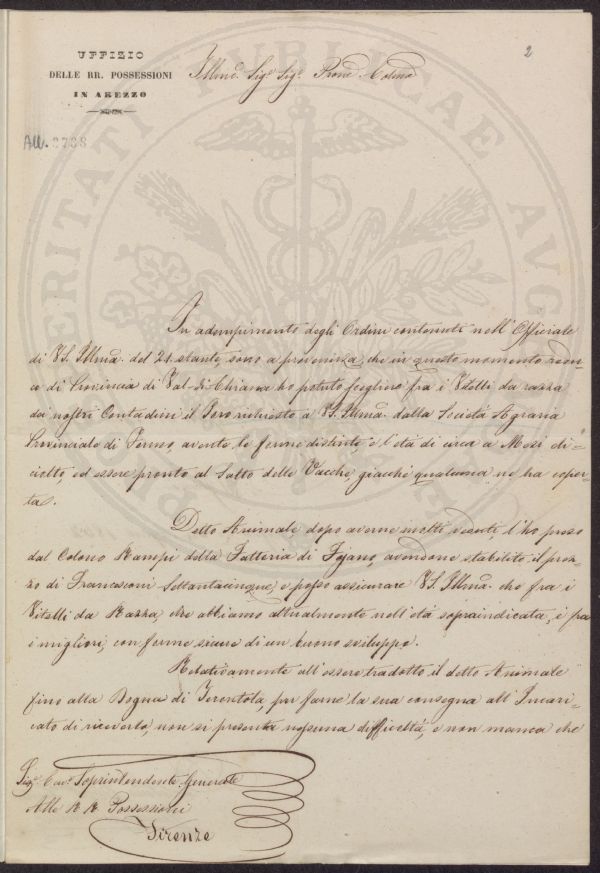 UFFIZIO
DELLE RR. POSSESSIONI
IN AREZZO
Illmo. Sigr. Sigr. Prone. Colmo.
2
All. 2788
VERITATI PUBLICAE AUG
In adempimento degli Ordini contenuti nell'Officiale
di VS. Illma. del 24. stante, sono a prevenirla, che in questo momento
di Provincia di Val-di-Chiana ho potuto scegliere fra i Vitelli da razza
dei nostri Contadini il Toro richiesto a VS. Illma. dalla Società Agraria
Provinciale di Fermo, avente le forme distinte, e l'età di circa a Mesi di-
ciotto, ed essere pronto al Salto delle Vacche, giacchè qualcuna ne ha coper-
ta.
Detto Animale dopo averne molti veduti l'ho preso
dal Colono Rampi della Fattoria di Fojano, avendone stabilito il prez-
zo di Francesconi Settantacinque, e posso assicurare VS. Illma. che fra i
Vitelli da Razza, che abbiamo attualmente nell'età sopraindicata, è fra
i migliori, con forme sicure di un buono sviluppo.
Relativamente all'essere tradotto il detto Animale
fino alla Dogna di Terentola, per farne la sua consegna all'Incari-
cato di riceverlo, non si presenta nessuna difficoltà, e non manca che
Sigr. Cavr. Soprintendente Generale
Alle RR Possessioni
Firenze